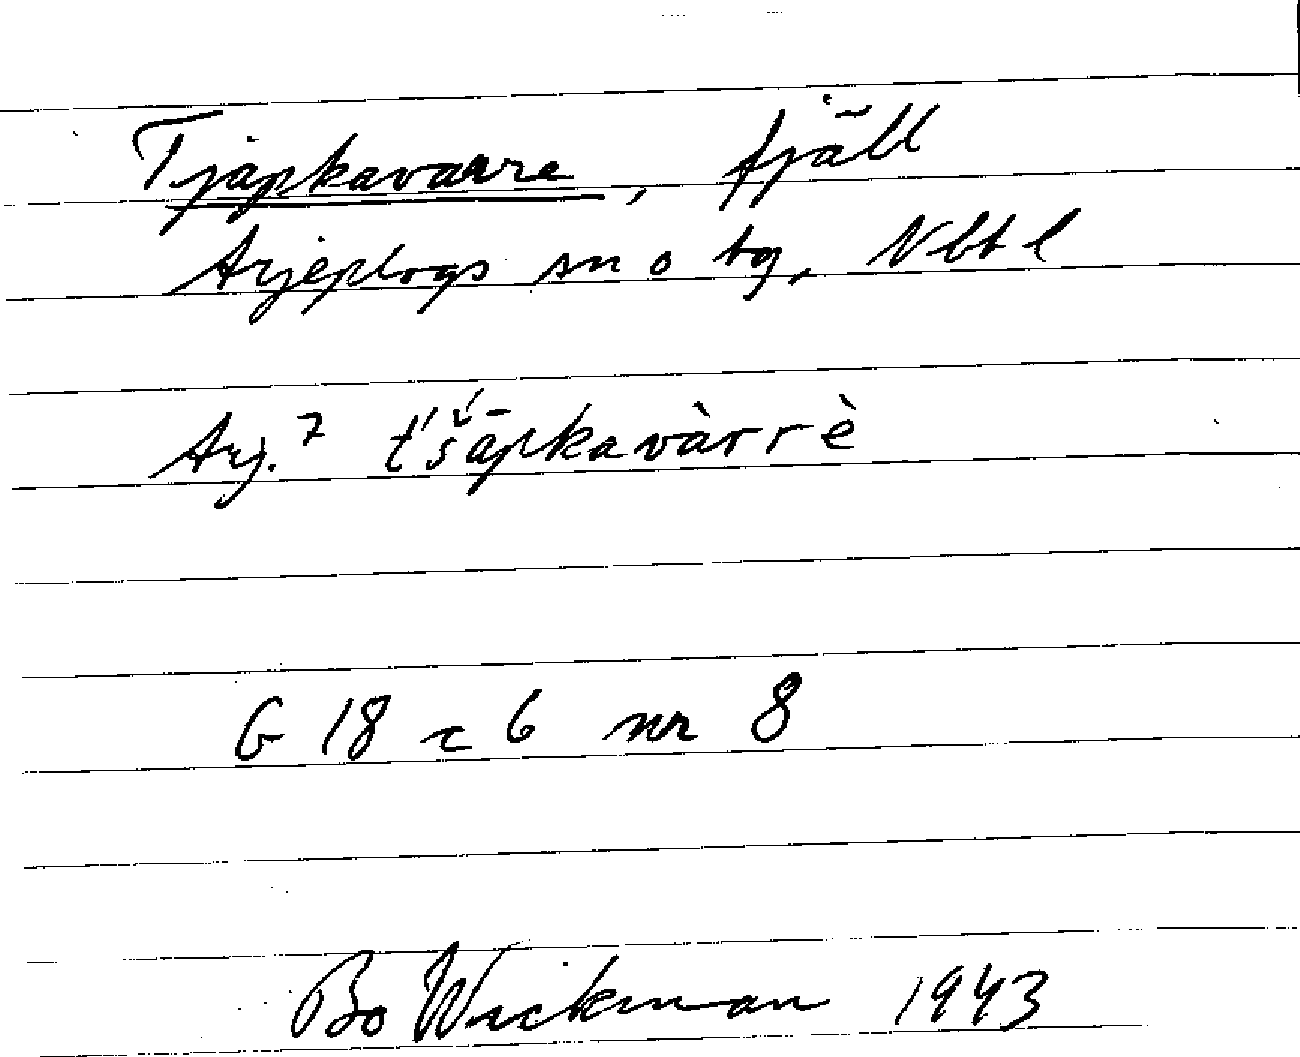 Tjäpkavarre, fjäll
Arjeplogs sn o tg, Nbt l
Arj.7 t́š́āpkavàrrè
G 18 c 6 nr 8
Bo Wickman 1943